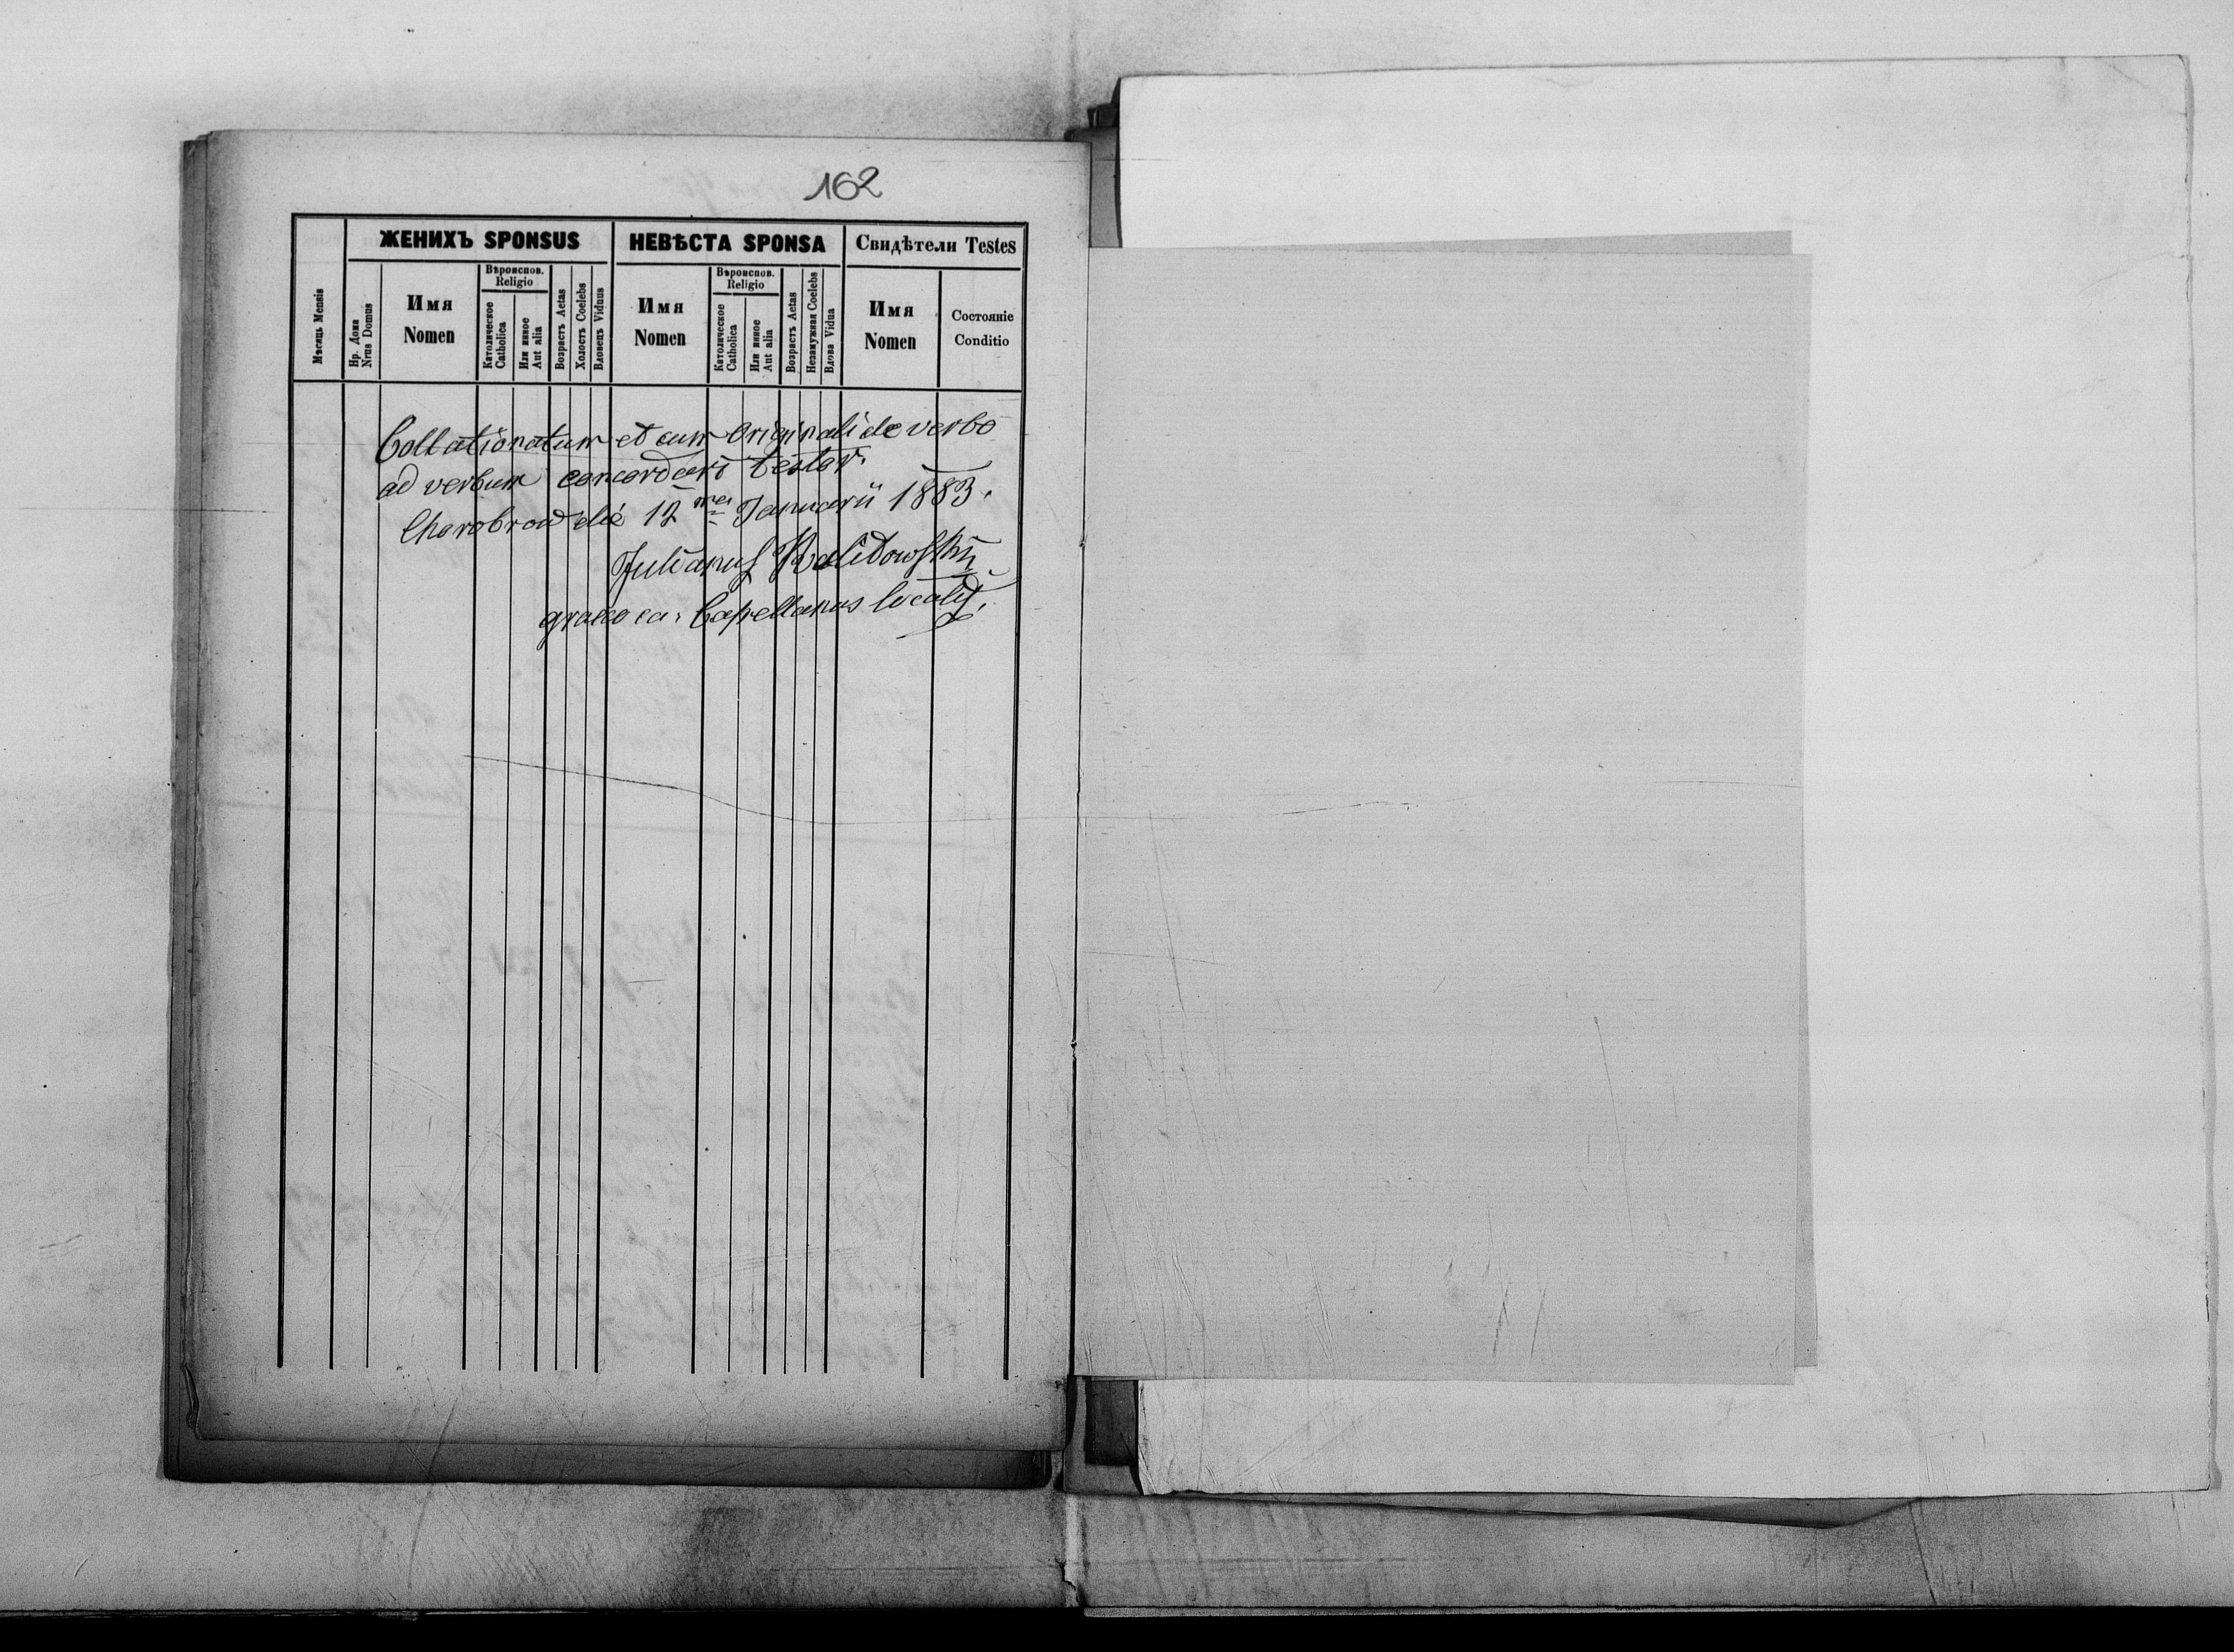 162
ЖЕНИХЪ SPONSUS
НЕВѢСТА SPONSA
Свидѣтели Testes
Мѣсяць Mensis
Нр. Дома
Nrus Domus
Имя
Nomen
Вѣроиспов.
Religio
Католическое
Catholica
Или иное
Aut alia
Возрастъ Aetas
Холостъ Coelebs
Вдовецъ Viduus
Имя
Nomen
Вѣроиспов.
Religio
Католическое
Catholica
Или иное
Aut alia
Возрастъ Aetas
Незамужная Coelebs
Вдова Vidua
Имя
Nomen
Состояніе
Conditio
Collationatum et cum Originali de verbo
ad verbum concordari testor.
Charobrod die 12 Januarii 1883.
Julianus
graeco ca. Capellanus localis.